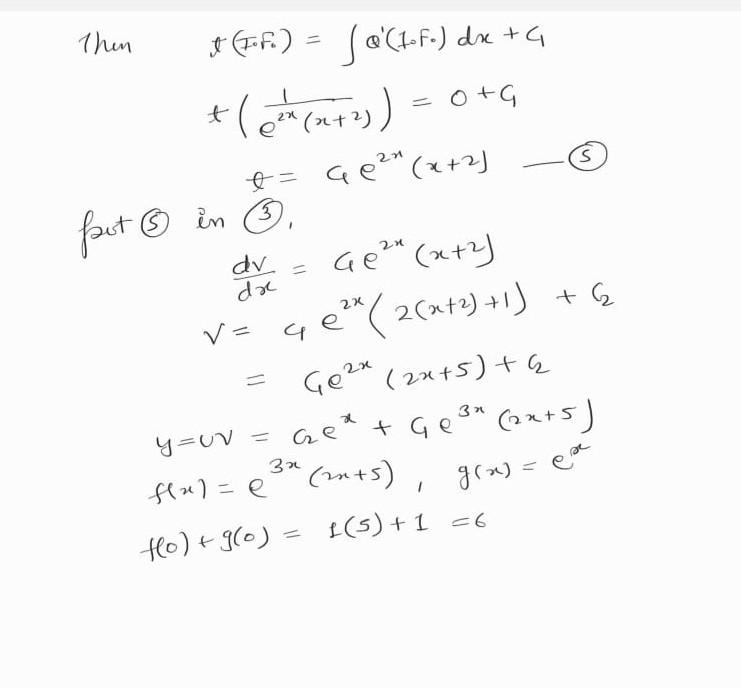 Then t(I.F.) = ∫ Q'(I.F.) dx + C₁
t(1/(e^{2x}(x+2))) = 0 + C₁
t = C₁e^{2x}(x+2) — ⑤
put ⑤ in ③,
dv/dx = C₁e^{2x}(x+2)
v = C₁e^{2x}(2(x+2)+1) + C₂
= C₁e^{2x}(2x+5) + C₂
y=uv = C₂e^x + C₁e^{3x}(2x+5)
f(x) = e^{3x}(2x+5), g(x) = e^x
f(0) + g(0) = 1(5) + 1 = 6